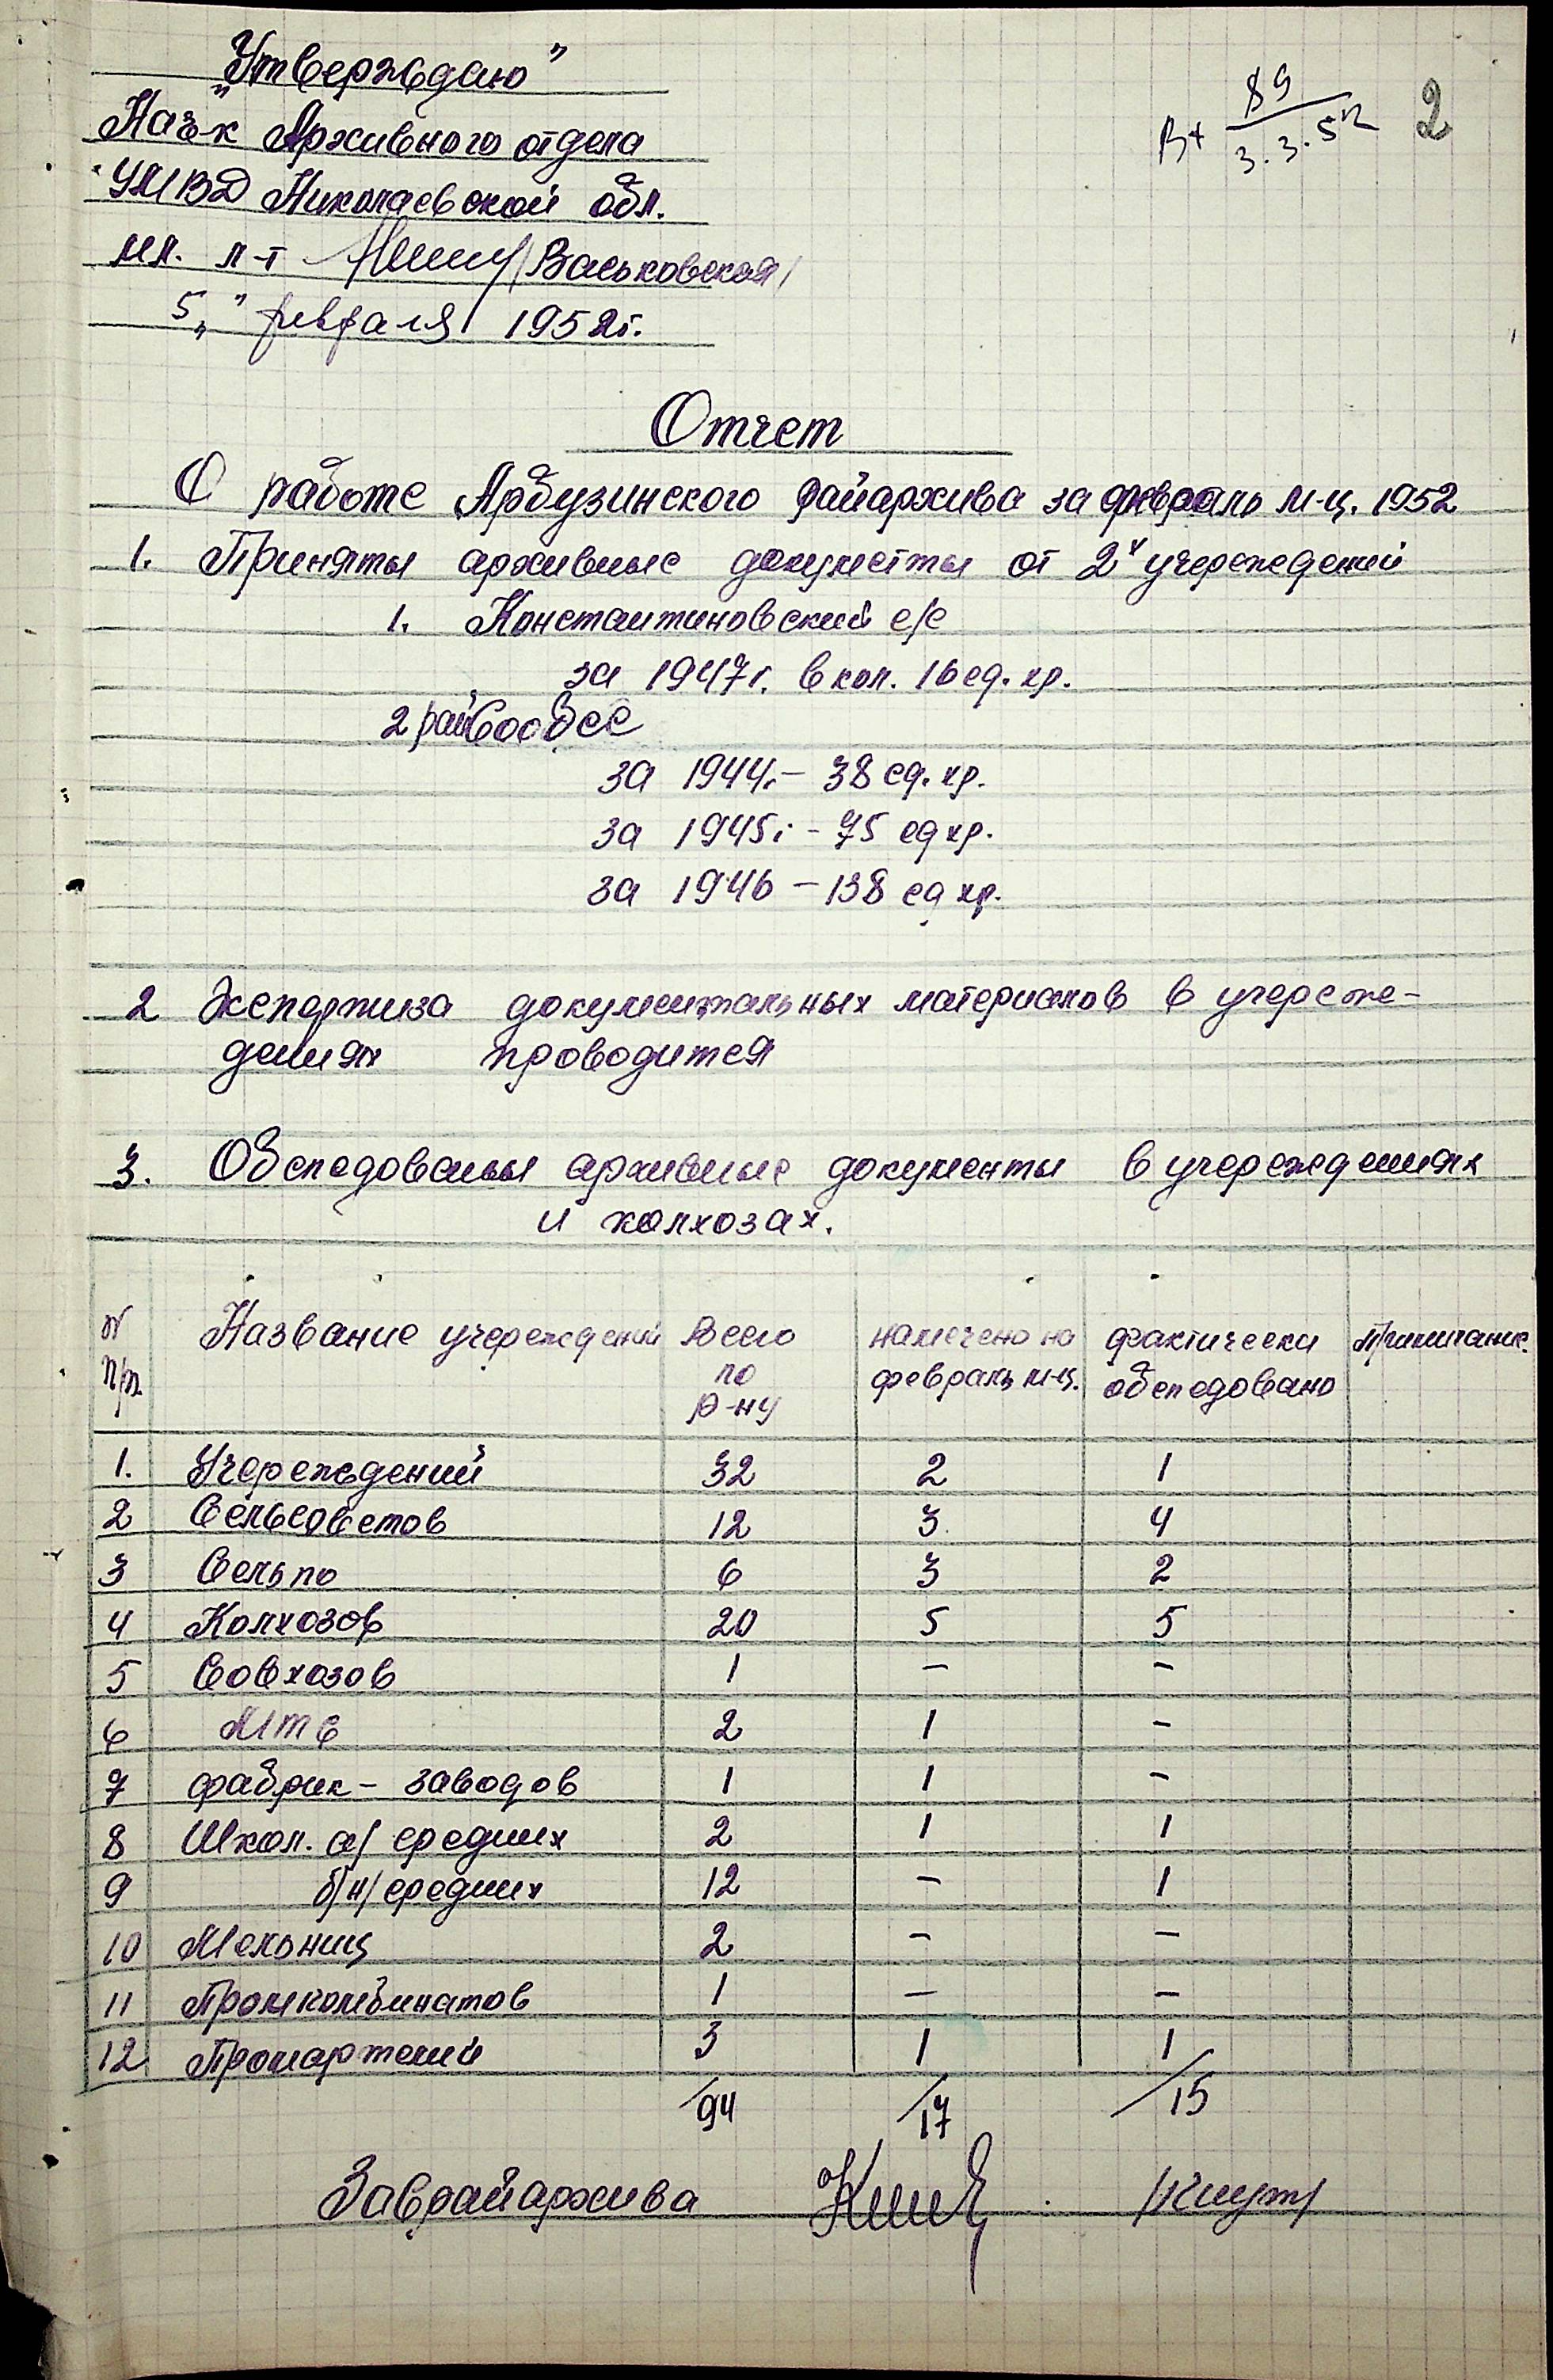 „Утверждаю"
Нач-к Архивного отдела
УМВД Николаевской обл.
мл. л-т /Васьковская/
5 „ " февраля 1952г.
Вх 89
3.3.52
2
Отчет
О работе Арбузинского райархива за февраль м-ц. 1952
1. Приняты архивные документы от 2х учереждений
1. Константиновский с/с
за 1947г. в кол. 16 ед. хр.
2 рай
за 1944г. – 38 ед. хр.
за 1945г – 75 ед хр.
за 1946 – 138 ед хр.
2 Экспертиза документальных материалов в учереже-
дениях проводится
3. Обследованы архивные документы в учереждениях
и колхозах.
№ п/п. Название учереждений Всего по р-ну намечено на февраль м-ц. фактически обследовано Примичание.
1. Учереждений 32 2 1
2 Сельсоветов 12 3 4
3 Сельпо 6 3 2
4 Колхозов 20 5 5
5 Совхозов 1 – –
6 МТС 2 1 –
7 фабрик – заводов 1 1 –
8 Школ. а/ средних 2 1 1
9 б/н/средних 12 – 1
10 Мельниц 2 – –
11 Промкомбинатов 1 – –
12 Промартелий 3 1 1
/94 /17 /15
Заврайархива /Кнут/